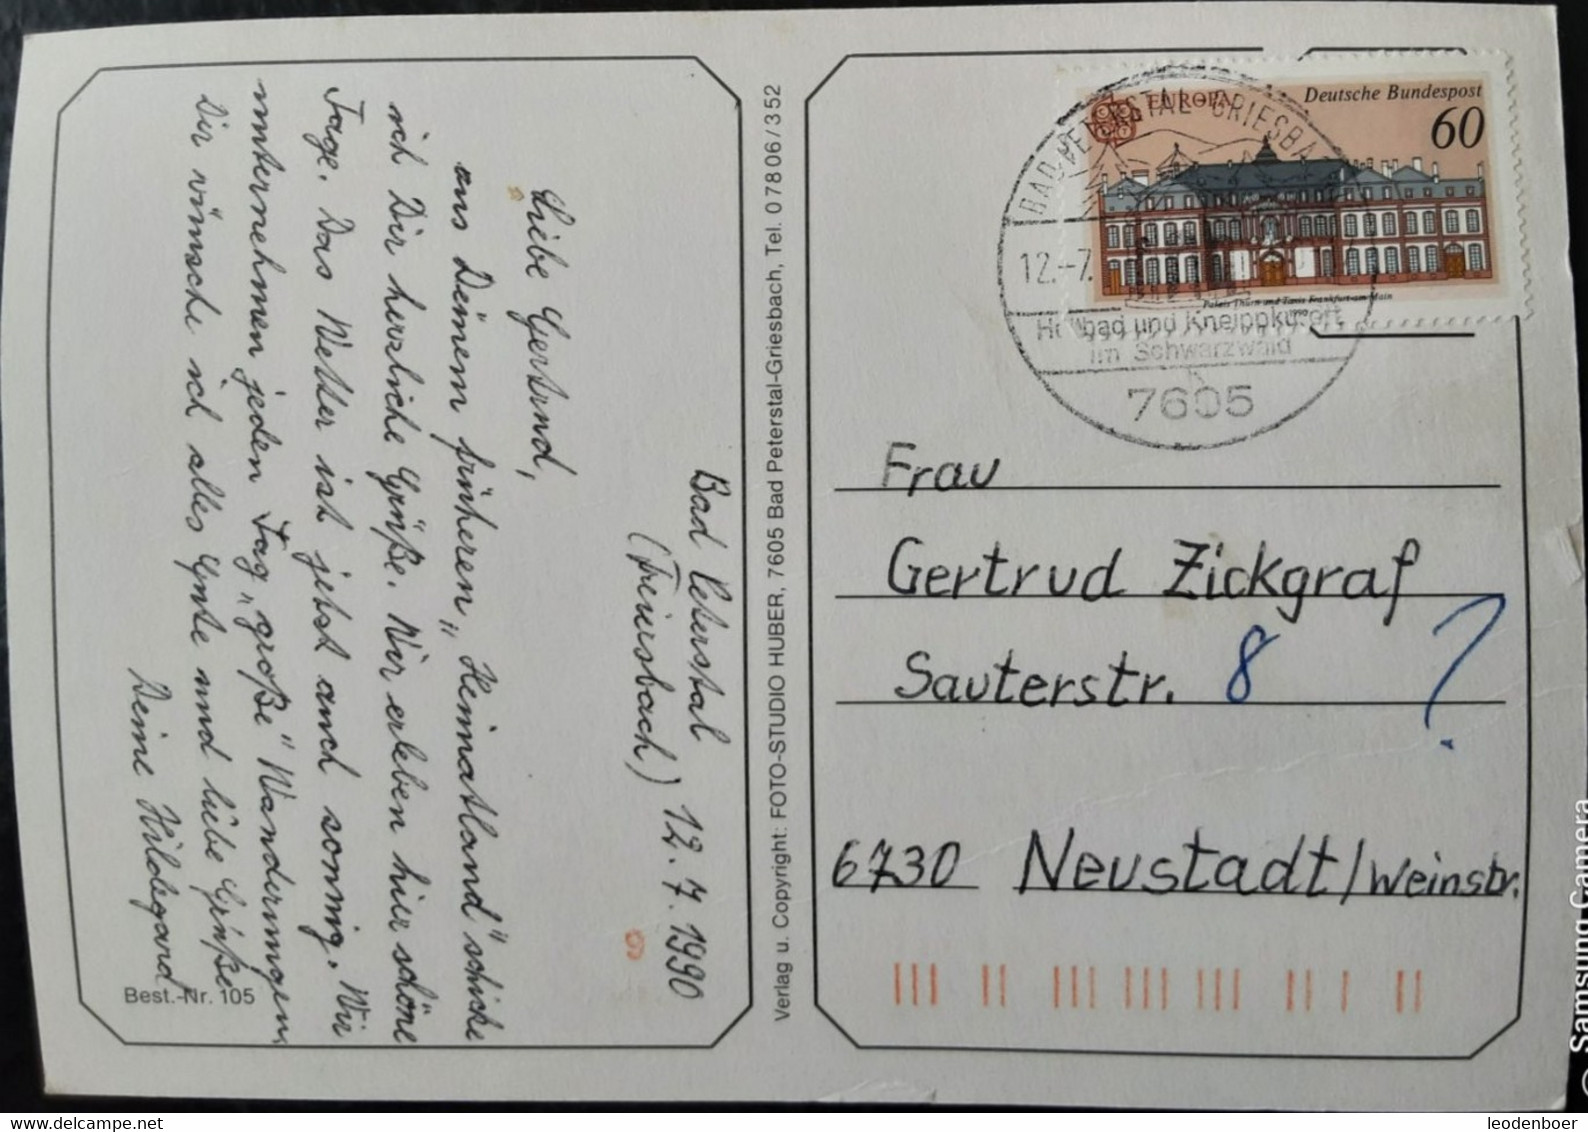 Bad Peterstal 12.7.1990
(Freiersbach)
Liebe Gertrud,
aus Deinem früheren „Heimatland“ schicke
ich Dir herzliche Grüße. Wir erleben hier schöne
Tage. Das Wetter ist jetzt auch sonnig. Wir
unternehmen jeden Tag „große“ Wanderungen
Dir wünsche ich alles Gute und liebe Grüße
Deine Hildegard
Best.-Nr. 105
Verlag u. Copyright: FOTO-STUDIO HUBER, 7605 Bad Peterstal-Griesbach, Tel. 07806/352
EUROPA
Deutsche Bundespost
60
Palais Thurn und Taxis Frankfurt am Main
BAD PETERSTAL-GRIESBA
12.-7.
Heilbad und Kneippkurort
im Schwarzwald
7605
Frau
Gertrud Zickgraf
Sauterstr. 8 ?
6730 Neustadt/Weinstr.
9
Samsung Camera
delcampe.net
leodenboer